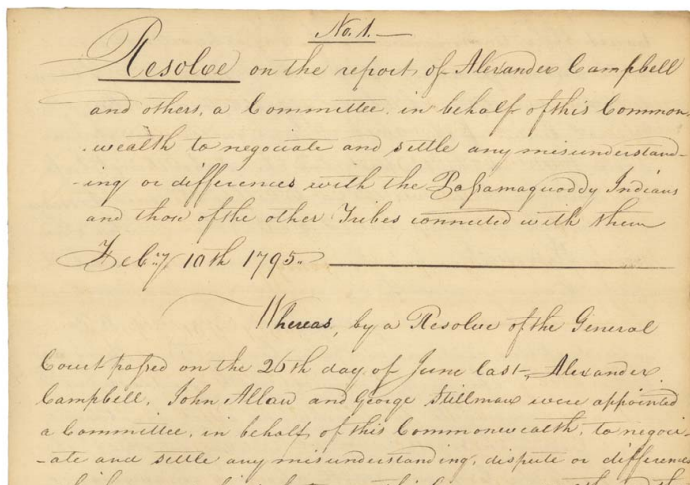 No. 1.—
Resolve on the report of Alexander Campbell
and others, a Committee, in behalf of this Common-
-wealth to negociate and settle any misunderstand-
-ing or differences with the Paſsamaquoddy Indians
and those of the other Tribes connected with them
Feb.ry 10th 1795.
Whereas, by a Resolve of the General
Court paſsed on the 26th day of June last, Alexander
Campbell, John Allan and George Stillman were appointed
a Committee, in behalf, of this Commonwealth, to negoci-
-ate and settle any misunderstanding, dispute or difference